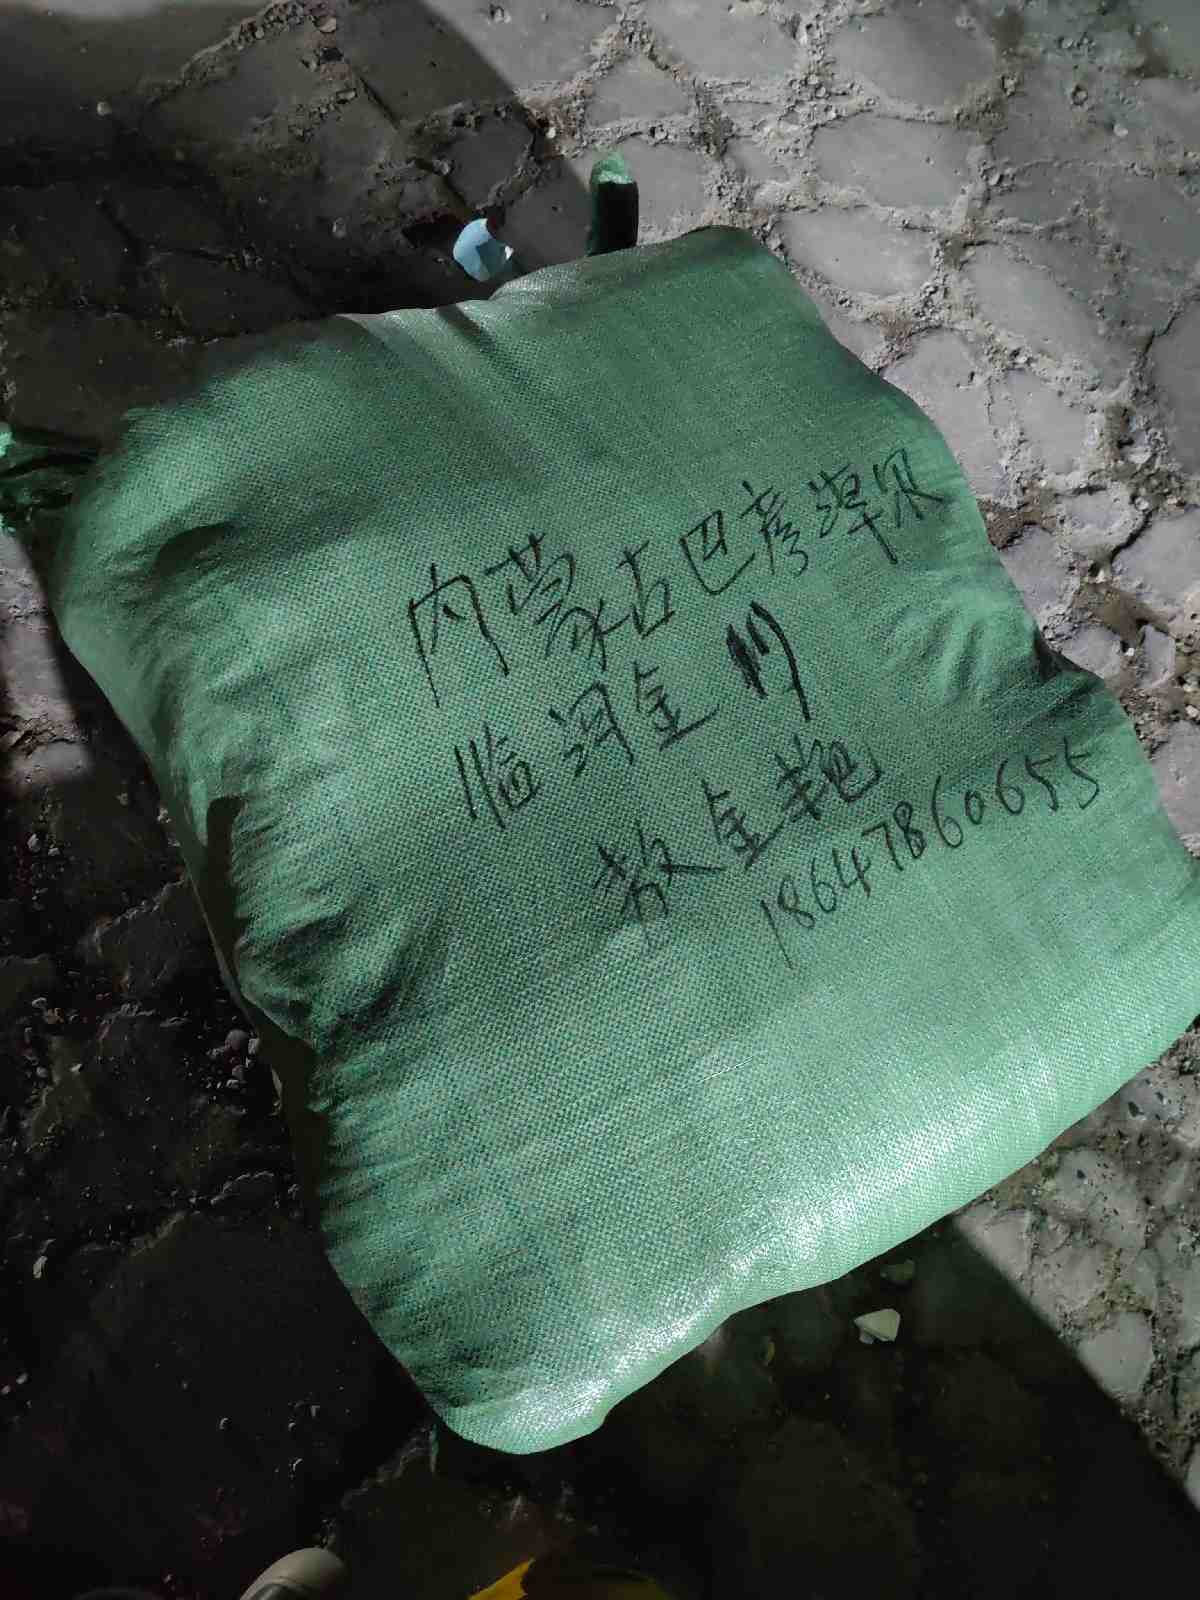 内蒙古巴彦淖尔
临河金川
敖金艳
18647860655